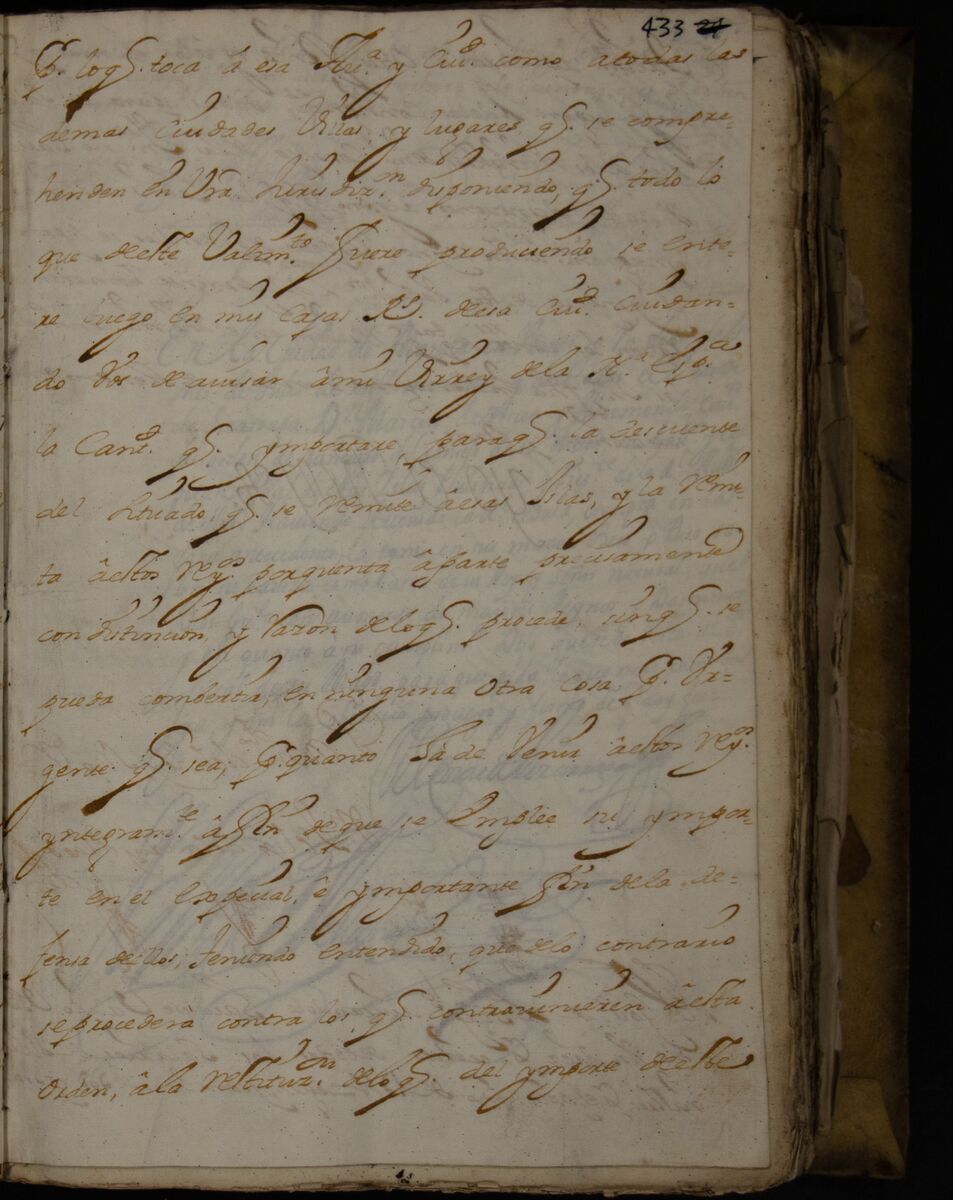 433 24
P. loq̃. toca â esa Aua.ᵃ y Ciu.ᵈ como atodas las
demas Ciudades, Villas, y lugares q̃. se compre-
henden en Vrã. Jurisdiz.ᵒⁿ disponiendo, q̃. todo lo
que deste Valim.ᵗᵒ fuere produciendo se ente-
re luego en mis Cajas R.ˢ desa Ciu.ᵈ Cuidan-
do Vos de auisar âmi Virrey de la N.ᵃ Esp.ᵃ
la Cant.ᵈ q̃. ymportare, paraq̃. la descuente
del situado q̃. se remite âesas Islas, y la remi-
ta âestos rey.ᵒˢ porquenta âparte precisamente
con distincion, y razon deloq̃. procede, sinq̃. se
pueda combertir, en ninguna otra cosa, P. Vr-
gente q̃. sea, P. quanto ha de Venir âestos rey.ᵒˢ
yntegram.ᵗᵉ âfin deque se emplee su ympor-
te en el expecial, ê ymportante fin dela de-
fensa dellos, teniendo entendido, que delo contrario
se procederà contra los q̃. contrauinieren âesta
orden, âla restituz.ᵒⁿ deloq̃. del ymporte deste